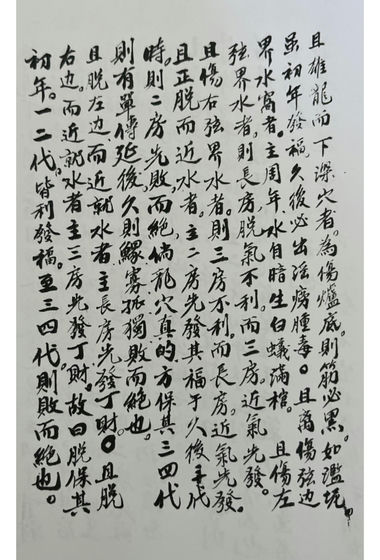 且雄龍而下深穴者。為傷爐底。則筋必黑。如濫坭
虽初年發福。久後必出法癆腫毒。且葬傷弦边
界水窩者。主周年水自暗生白蟻满棺。且傷左
弦界水者。則長房脱氣不利。而三房。近氣先發。
且傷右弦界水者。則三房不利。而長房。近氣先發。
且正脱而近水者。主二房先發其福于久後三代
時。則二房先敗而絕。倘龍穴真的。方保其三四代
則有單傳延後久則鰥寡孤獨敗而絕也。
且脱左边而近就水者主長房先發丁財。且脱
右边。而近就水者主三房先發丁財。故曰脱保其
初年。一二代。皆利發福。至三四代。則敗而絕也。